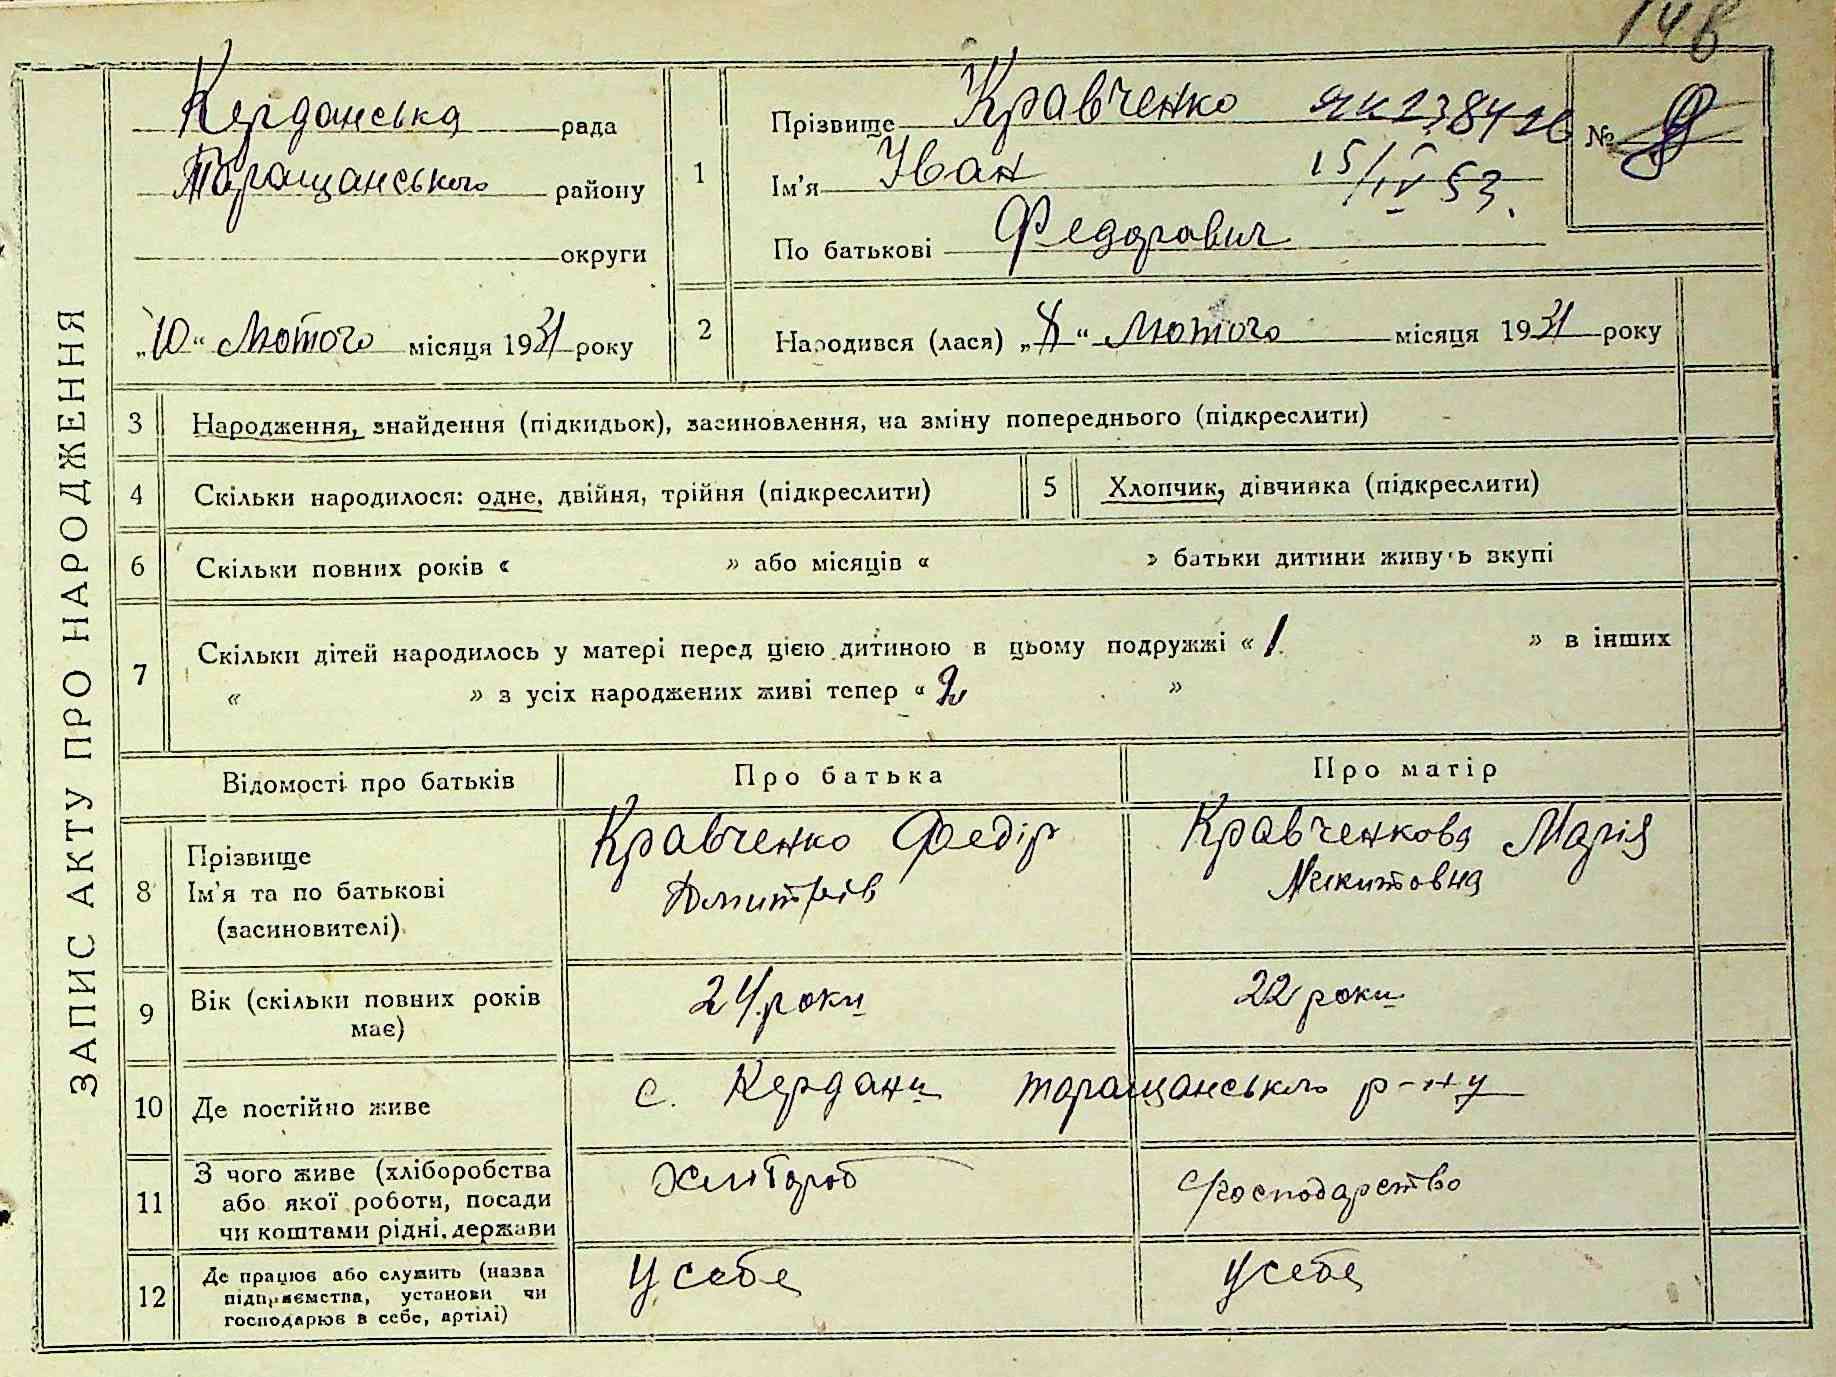 148
ЗАПИС АКТУ ПРО НАРОДЖЕННЯ
Керданська рада
Таращанського району
округи
„10“ Лютого місяця 1931 року
1
Прізвище Кравченко ЯК 238426
Ім'я Іван 15/IV 53.
По батькові Федорович
№ 8
2
Народився (лася) „8“ Лютого місяця 1931 року
3 Народження, знайдення (підкидьок), засиновлення, на зміну попереднього (підкреслити)
4 Скільки народилося: одне, двійня, трійня (підкреслити) 5 Хлопчик, дівчинка (підкреслити)
6 Скільки повних років « » або місяців « » батьки дитини живуть вкупі
7 Скільки дітей народилось у матері перед цією дитиною в цьому подружжі « 1 » в інших
« » з усіх народжених живі тепер « 2 »
Відомості про батьків Про батька Про матір
8 Прізвище Ім'я та по батькові (засиновителі) Кравченко Федір Дмитрів Кравченкова Марія Микитовна
9 Вік (скільки повних років має) 24 роки 22 роки
10 Де постійно живе с. Кердани таращанського р-ну
11 З чого живе (хліборобства або якої роботи, посади чи коштами рідні, держави Хлібороб господарство
12 Де працює або служить (назва підприємства, установи чи господарює в себе, артілі) У себе У себе